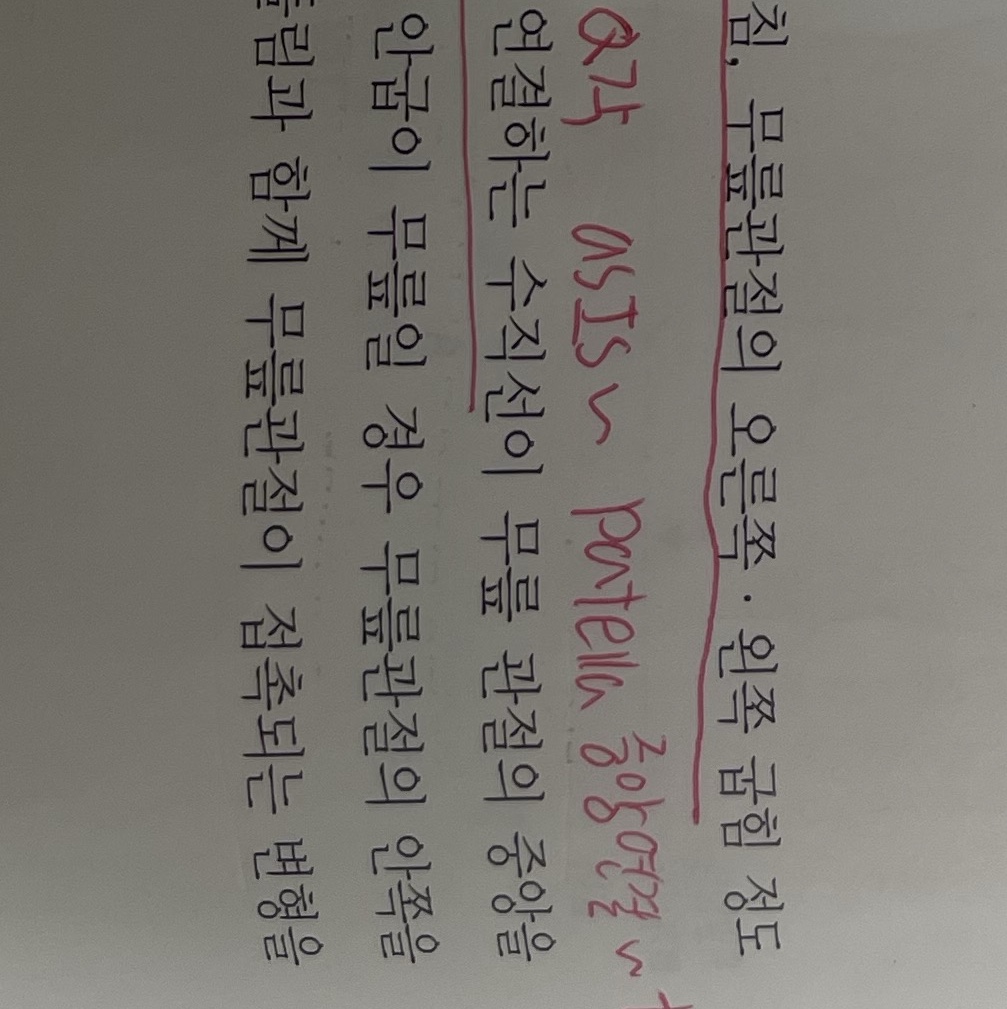 침, 무릎관절의 오른쪽 · 왼쪽 굽힘 정도
Q각 ASIS ~ patella 중앙연결 ~
연결하는 수직선이 무릎 관절의 중앙을
안굽이 무릎일 경우 무릎관절의 안쪽을
들림과 함께 무릎관절이 접촉되는 변형을